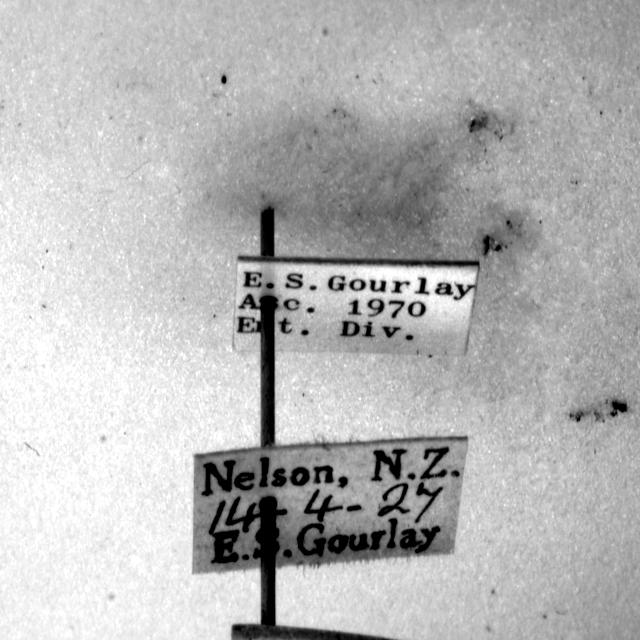 E. S. Gourlay
Acc. 1970
Ent. Div.
Nelson, N.Z.
14-4-27
E.S.Gourlay